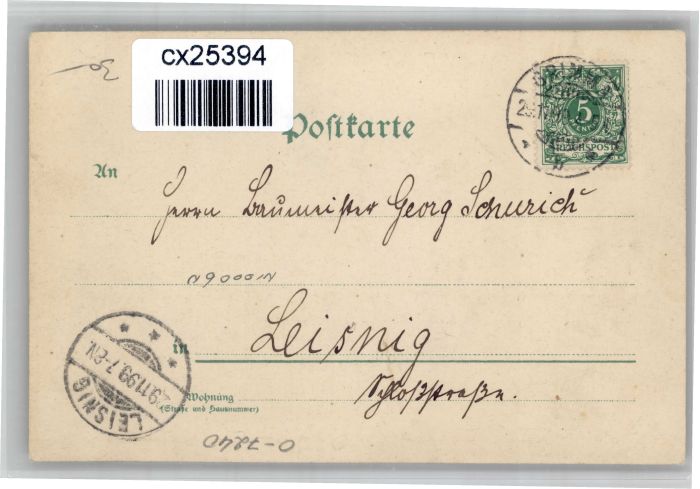 cx25394
Postkarte
GRIMMA
5
PFENNIG
REICHSPOST
An
Herrn Baumeister Georg Schurich
N9000N
in Leisnig
LEISNIG
29.11.99.7-8N.
Wohnung
(Straße und Hausnummer)
Schloßstraße.
0-7240